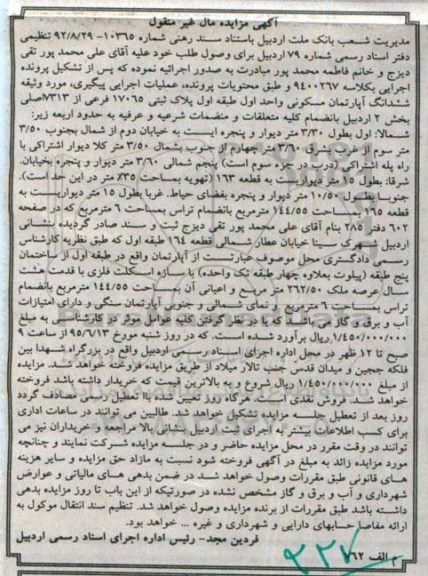 آگهی مزایده مال غیر منقول
مدیریت شعب بانک ملت اردبیل باستناد سند رهنی شماره ۱۰۳۶۵- ۹۲/۸/۲۹ تنظیمی
دفتر اسناد رسمی شماره ۷۹ اردبیل برای وصول طلب خود علیه آقای علی محمد پور تقی
دیزج و خانم فاطمه محمد پور مبادرت به صدور اجرائیه نموده که پس از تشکیل پرونده
اجرایی بکلاسه ۹۴۰۰۲۶۷ و طبق محتویات پرونده، عملیات اجرایی پیگیری، مورد وثیقه
ششدانگ آپارتمان مسکونی واحد اول طبقه اول پلاک ثبتی ۱۷۰۶۵ فرعی از ۷۳۱۳اصلی
بخش ۲ اردبیل بانضمام کلیه متعلقات و منضمات شرعیه و عرفیه به حدود اربعه زیر:
شمالا: اول بطول ۳/۳۰ متر دیوار و پنجره ایست به خیابان دوم از شمال بجنوب ۳/۵۰
متر سوم از غرب بشرق ۳/۶۰ متر چهارم از جنوب بشمال ۳/۵۰ متر کلا دیوار اشتراکی با
راه پله اشتراکی (درب در حد سوم است) پنجم شمالی ۳/۶۰ متر دیوار و پنجره بخیابان.
شرقا: بطول ۱۵ متر دیواریست به قطعه ۱۶۳ (تهویه بمساحت ۳۵٪ متر در این حد است).
جنوبا بطول ۱۰/۵۰ متر دیوار و پنجره بفضای حیاط. غربا بطول ۱۵ متر دیواریست به
قطعه ۱۶۵ بمساحت ۱۴۴/۵۵ مترمربع بانضمام تراس بمساحت ۶ مترمربع که در صفحه
۶۰۲ دفتر ۲۸۵ بنام آقای علی محمد پور تقی دیزج ثبت و سند صادر گردیده بنشانی
اردبیل شهرک سینا خیابان عطار شمالی قطعه ۱۶۴ طبقه اول که طبق نظریه کارشناس
رسمی دادگستری محل موصوف عبارتست از آپارتمان واقع در طبقه اول از ساختمان
پنج طبقه (پیلوت بعلاوه چهار طبقه تک واحده) با سازه اسکلت فلزی با قدمت هشت
سال عرصه ملک ۲۶۲/۵۰ متر مربع و اعیانی آن بمساحت ۱۴۴/۵۵ مترمربع بانضمام
تراس بمساحت ۶ مترمربع و نمای شمالی و جنوبی آپارتمان سنگی و دارای امتیازات
آب و برق و گاز می باشد که با در نظر گرفتن کلیه عوامل موثر در کارشناسی به مبلغ
۱/۴۵۰/۰۰۰/۰۰۰ ریال برآورد شده است. که در روز شنبه مورخ ۹۵/۶/۱۳ از ساعت ۹
صبح تا ۱۲ ظهر در محل اداره اجرای اسناد رسمی اردبیل واقع در بزرگراه شهدا بین
فلکه ججین و میدان قدس جنب تالار میلاد از طریق مزایده فروخته خواهد شد. مزایده
از مبلغ ۱/۴۵۰/۰۰۰/۰۰۰ ریال شروع و به بالاترین قیمت که خریدار داشته باشد فروخته
خواهد شد. فروش نقدی است. هرگاه روز تعیین شده با تعطیل رسمی مصادف گردد
روز بعد از تعطیل جلسه مزایده تشکیل خواهد شد. طالبین می توانند در ساعات اداری
برای کسب اطلاعات بیشتر به اجرای ثبت اردبیل بنشانی بالا مراجعه و خریداران نیز می
توانند در وقت مقرر در محل مزایده حاضر و در جلسه مزایده شرکت نمایند و چنانچه
مورد مزایده زائد به مبلغ در آگهی فروخته شود نسبت به مازاد حق مزایده و سایر هزینه
های قانونی طبق مقررات وصول خواهد شد. در ضمن بدهی های مالیاتی و عوارض
شهرداری و آب و برق و گاز مشخص نشده در صورتیکه از این باب تا روز مزایده بدهی
داشته باشد طبق مقررات از برنده مزایده وصول خواهد شد. تنظیم سند انتقال موکول به
ارائه مفاصا حسابهای دارایی و شهرداری و غیره ... خواهد بود.
فردین مجد- رئیس اداره اجرای اسناد رسمی اردبیل
م الف ۷۶۲
۲۲۷